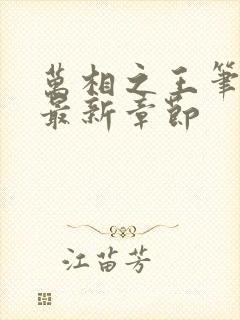 萬相之王筆
最新章節
江苗芳